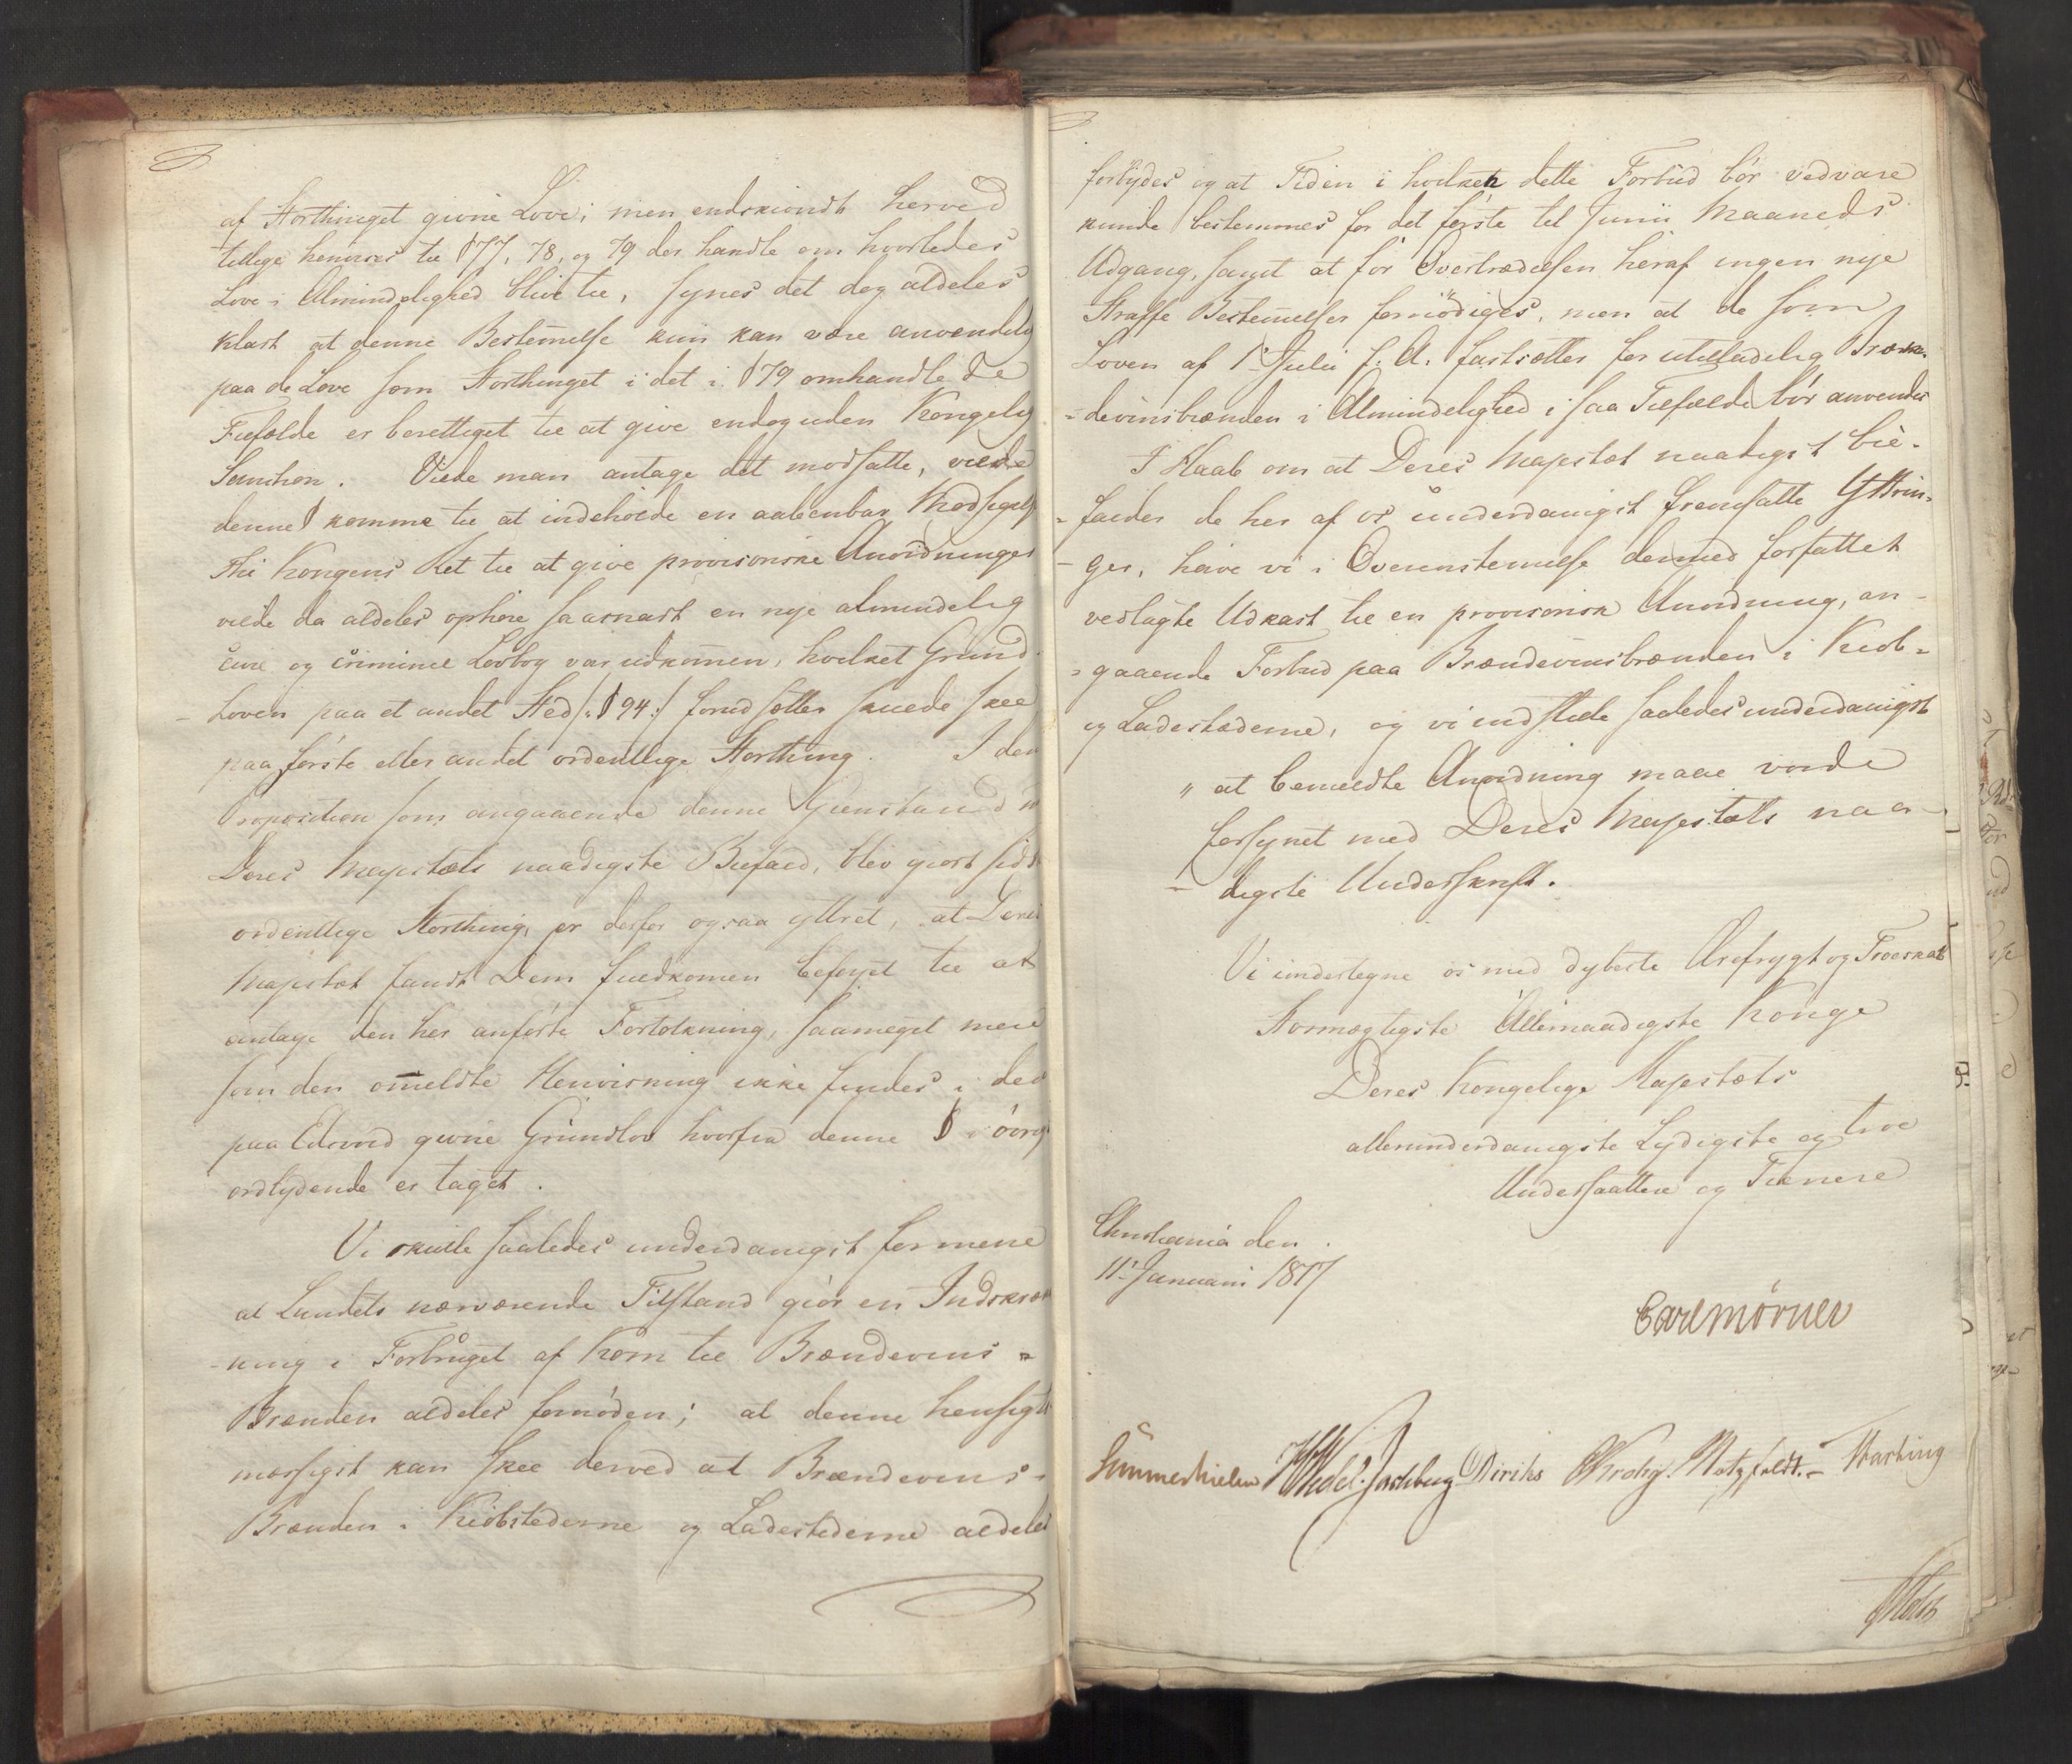 af Storthinget givne Love; men endskiøndt herved
tillige henvises til § 77, 78, og 79 der handle om hvorledes
Love i Almindelighed blive til, synes det dog aldeles
klart at denne Bestem̅else kun kan være anvendelig
paa de Love som Storthinget i det i § 79 omhandlede
Tilfælde er berettiget til at give endog uden Kongelig
Sanction. Vilde man antage det modsatte, vilde
denne § komme til at indeholde en aabenbar Modsigelse
thi Kongens Ret til at give provisoriske Anordninger
vilde da aldeles ophøre saasnart en nye almindelig
Civil og Criminel Lovbog var udkom̅en, hvilket Grund-
-Loven paa et andet Sted /: § 94 :/ forudsætter skulde skee
paa første eller andet ordentlige Storthing. I den
Proposition som angaaende denne Gienstand
Deres Majestæts naadigste Bifald, blev giort sidste
ordentlige Storthing, er derfor ogsaa yttret, at Deres
Majestæt fandt Dem fuldkom̅en beføyet til at
antage den her anførte Fortolkning, saameget mere
som den om̅eldte Henviisning ikke findes i den
paa Eidsvold givne Grundlov hvorfra denne § i øvrigt
ordlydende er taget.
Vi skulle saaledes underdanigst formene
at Landets nærværende Tilstand giør en Indskræn
-kning i Forbruget af Korn til Brændeviins-
Brænden aldeles fornøden; at denne hensigts
mæssigst kan skee derved at Brændeviins-
Brænden i Kiøbstederne og Ladestederne aldeles
forbydes og at Tiden i hvilken dette Forbud bør vedvare
kunde bestemmes for det første til Junii Maaneds
Udgang, samt at for Overtrædelsen heraf ingen nye
Straffe Bestem̅elser fornødiges, men at de som
Loven af 1ste Julii f. A. fastsætter for utilladelig Bræn-
-deviinsbrænden i Almindelighed i saa Tilfælde bør anvendes
I Haab om at Deres Majestæt naadigst bi-
-falder de her af os underdanigst fremsatte Yttrin-
-ger, have vi i Overenstem̅else dermed forfattet
vedlagte Udkast til en provisorisk Anordning, an-
-gaaende Forbud paa Brændeviinsbrænden i Kiøb-
og Ladestæderne, og vi indstille saaledes underdanigst
" at bemeldte Anordning maae vorde
forsynet med Deres Majestæts naa-
-digste Underskrift.
Vi undertegne os med dybeste Ærefrygt og Troeskab
Stormægtigste Allernaadigste Konge
Deres Kongelige Majestæts
allerunderdanigste Lydigste og troe
Undersaattere og Tienere
Christiania den
11te Januarii 1817
Carl Mörner
Sommerhielm HWedel-Jarlsberg Diriks Krohg. Motzfeldt. Treschow
Holst